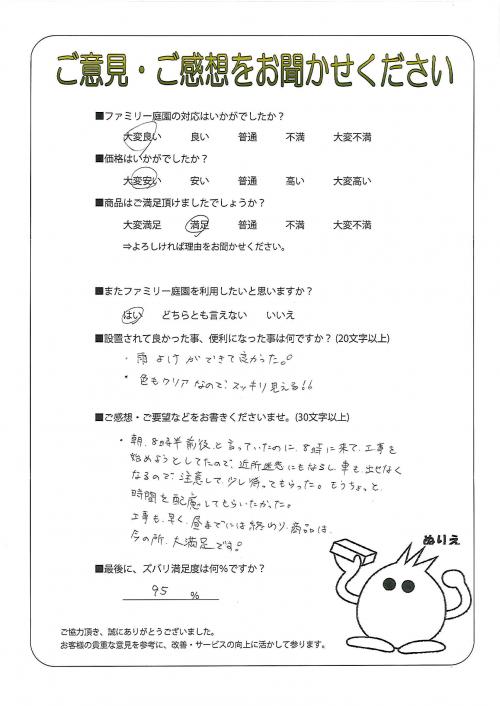 ご意見・ご感想をお聞かせください
■ファミリー庭園の対応はいかがでしたか？
大変良い 良い 普通 不満 大変不満
■価格はいかがでしたか？
大変安い 安い 普通 高い 大変高い
■商品はご満足頂けましたでしょうか？
大変満足 満足 普通 不満 大変不満
⇒よろしければ理由をお聞かせください。
■またファミリー庭園を利用したいと思いますか？
はい どちらとも言えない いいえ
■設置されて良かった事、便利になった事は何ですか？(20文字以上)
・雨よけができて良かった。
・色もクリアなので、スッキリ見える!!
■ご感想・ご要望などをお書きくださいませ。(30文字以上)
・朝、8時半前後と言っていたのに、8時に来て、工事を
始めようとしてたので、近所迷惑にもなるし、車も出せなく
なるので、注意して少し待ってもらった。もうちょっと、
時間を配慮してもらいたかった。
工事も、早く、昼までには終わり、商品は、
今の所、大満足です。
■最後に、ズバリ満足度は何％ですか？
95 %
ぬりえ
ご協力頂き、誠にありがとうございました。
お客様の貴重な意見を参考に、改善・サービスの向上に活かして参ります。